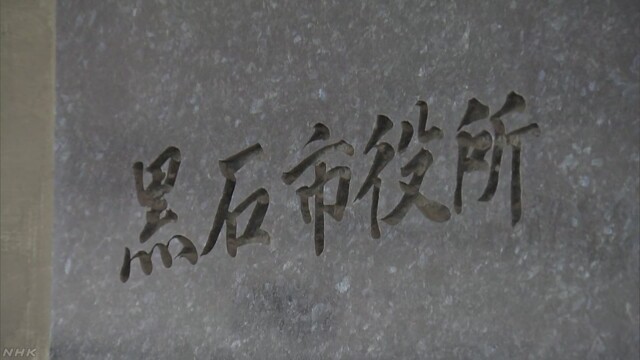 黒石市役所
NHK